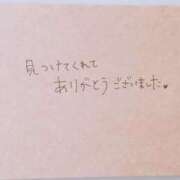 見つけてくれて
ありがとうございました♥